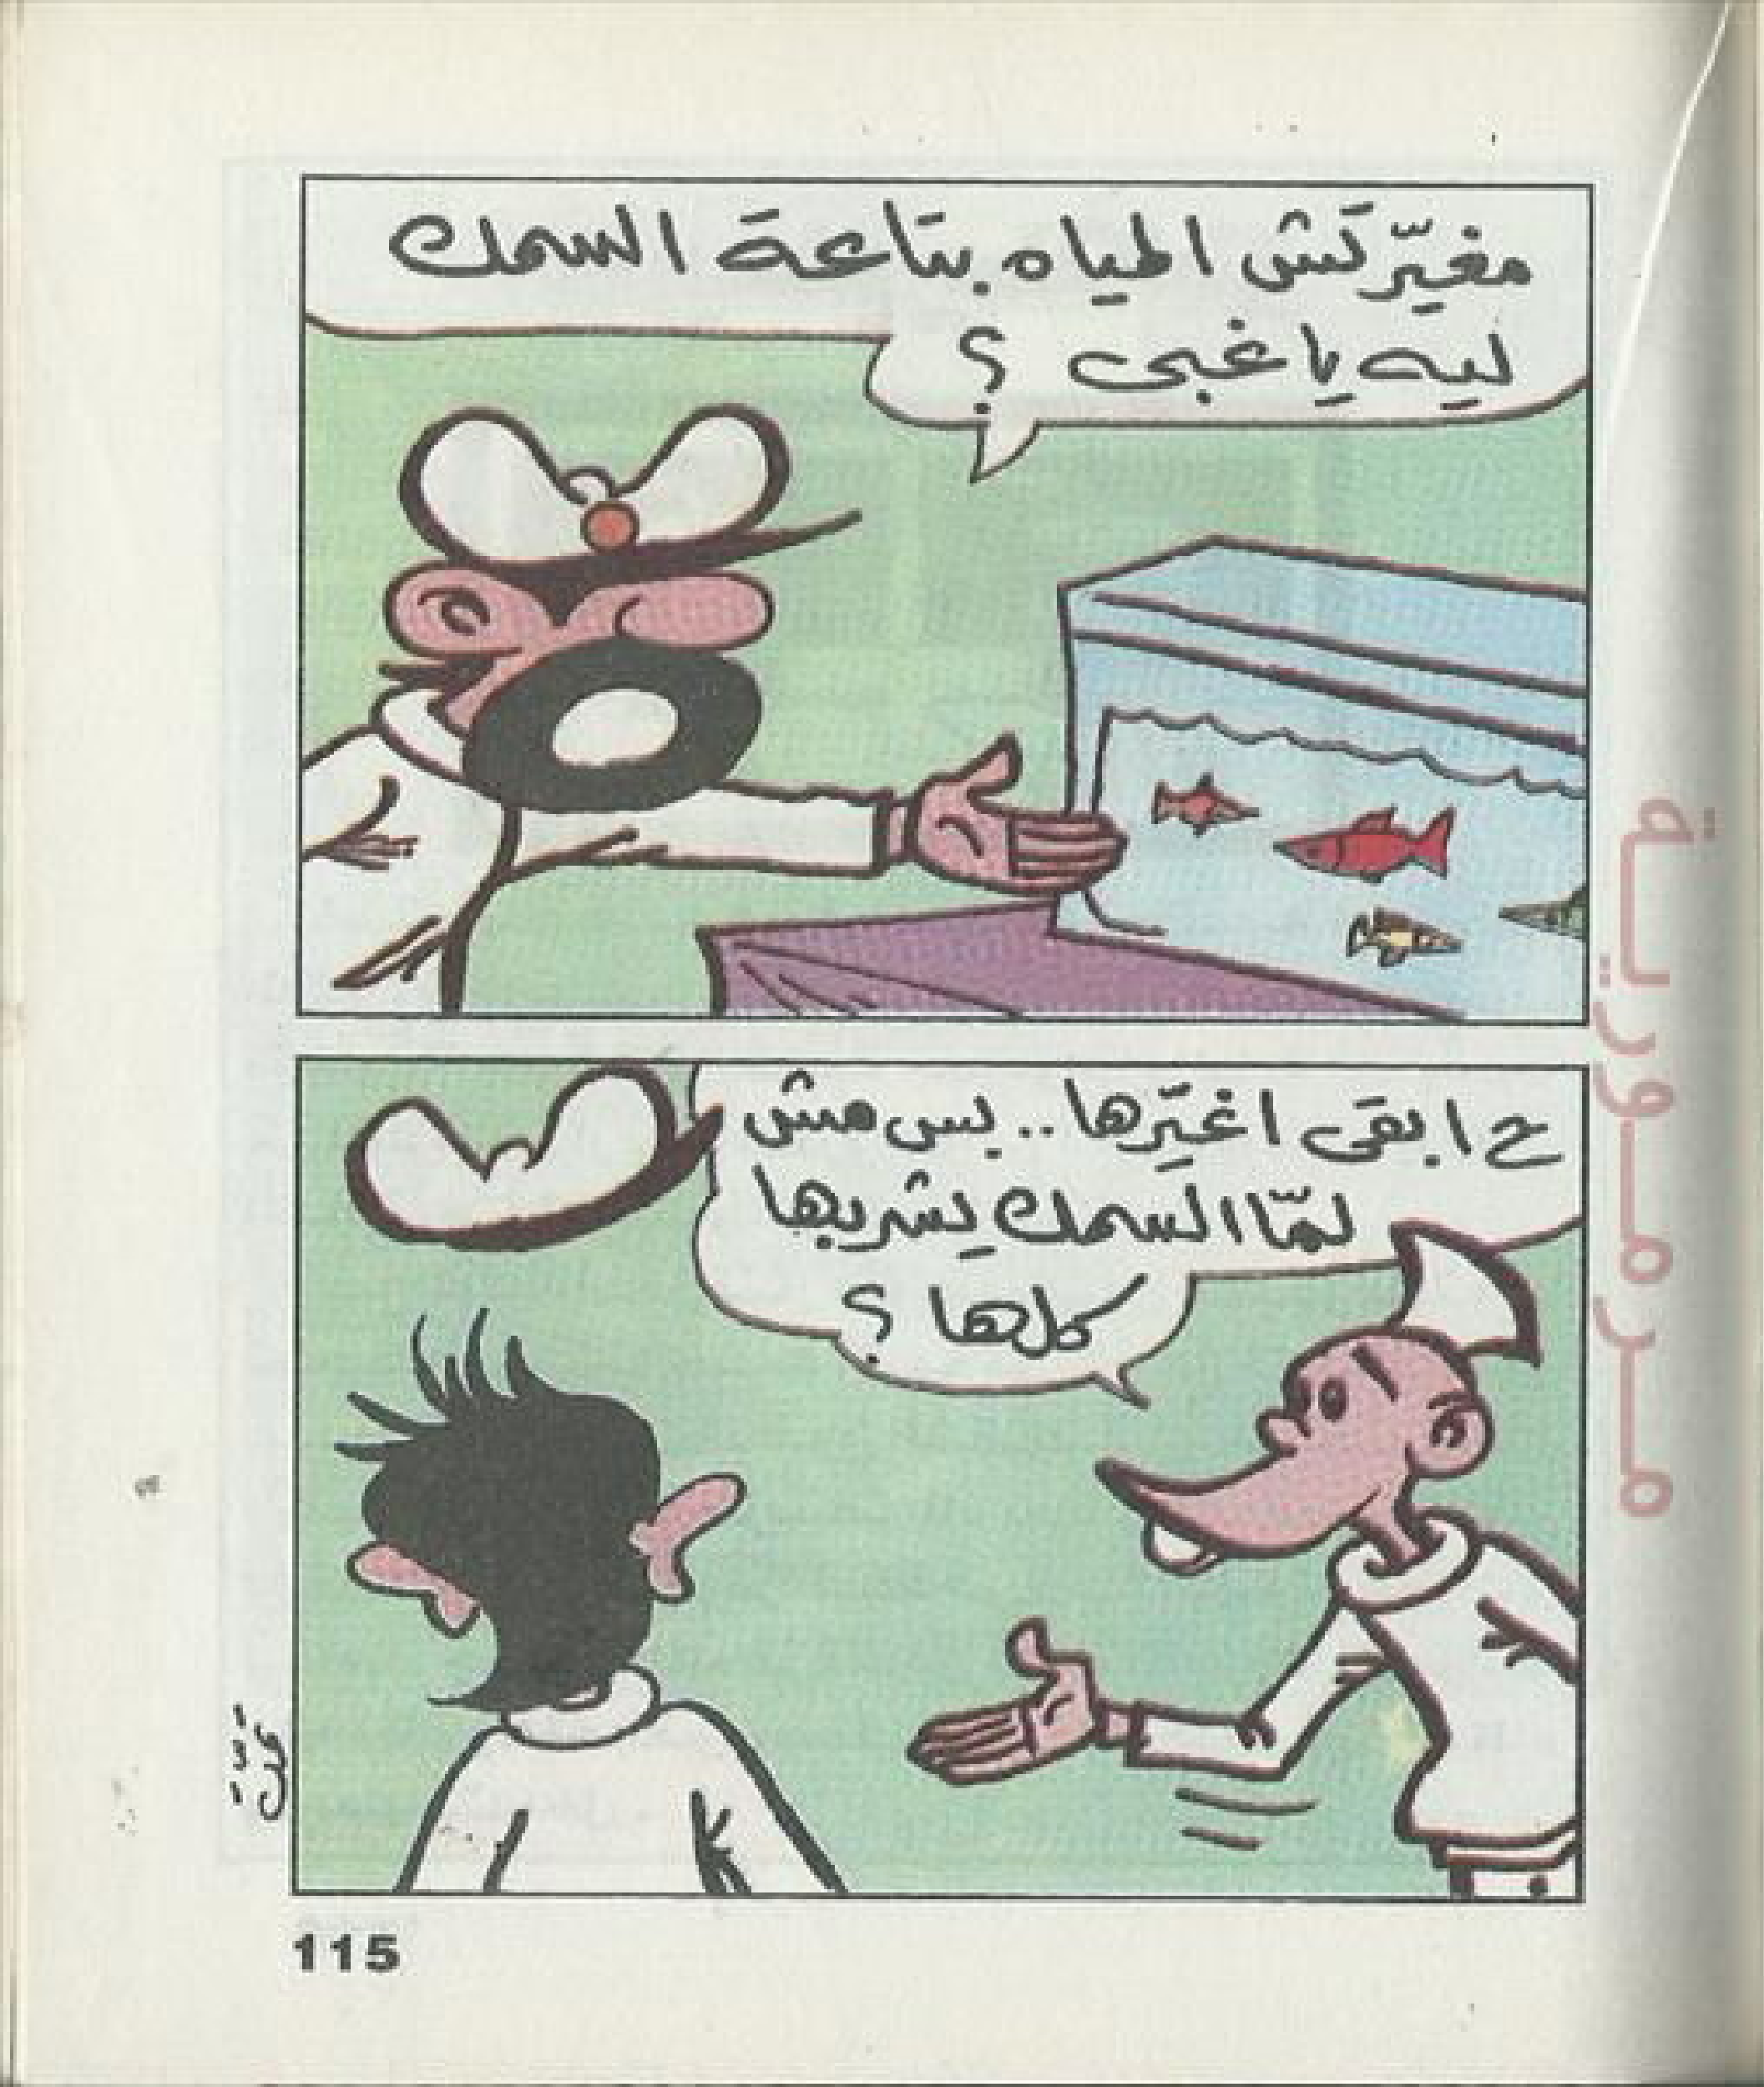 مغيّرتش المياه بتاعة السمك
ليه يا غبى ؟
ح ابقى اغيّرها.. بس مش
لمّا السمك يشربها
كلها ؟
مرمورية
115